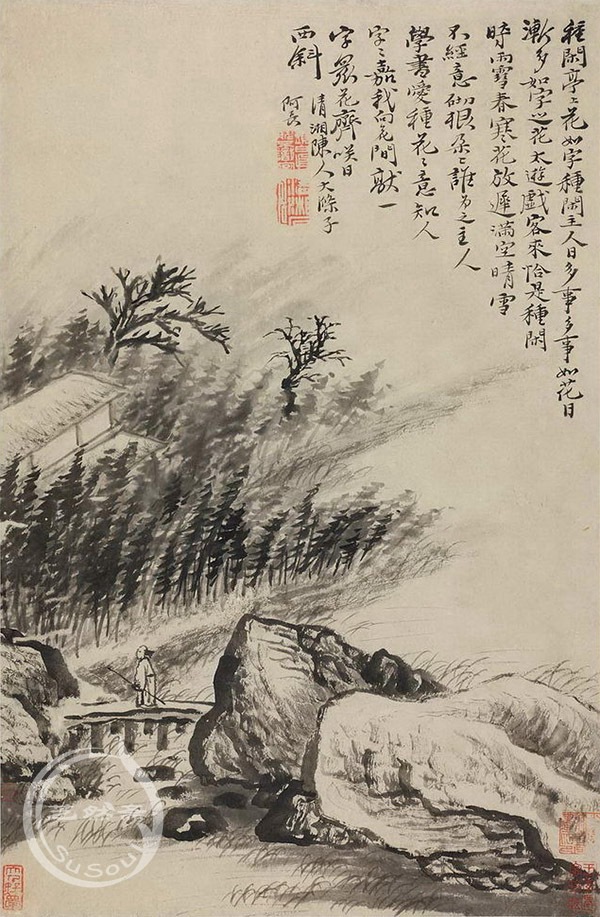 種閑亭上花如字種閑主人日多事多事如花日
漸多如字之花太遊戲客來恰是種閑
時雨雪春寒花放遲滿空晴雪
不經意砌根朵上誰為之主人
學書愛種花之意知人
字字嘉我向花間獻一
字眾花齊笑日
西斜
清湘陳人大滌子
阿長
SuSouth